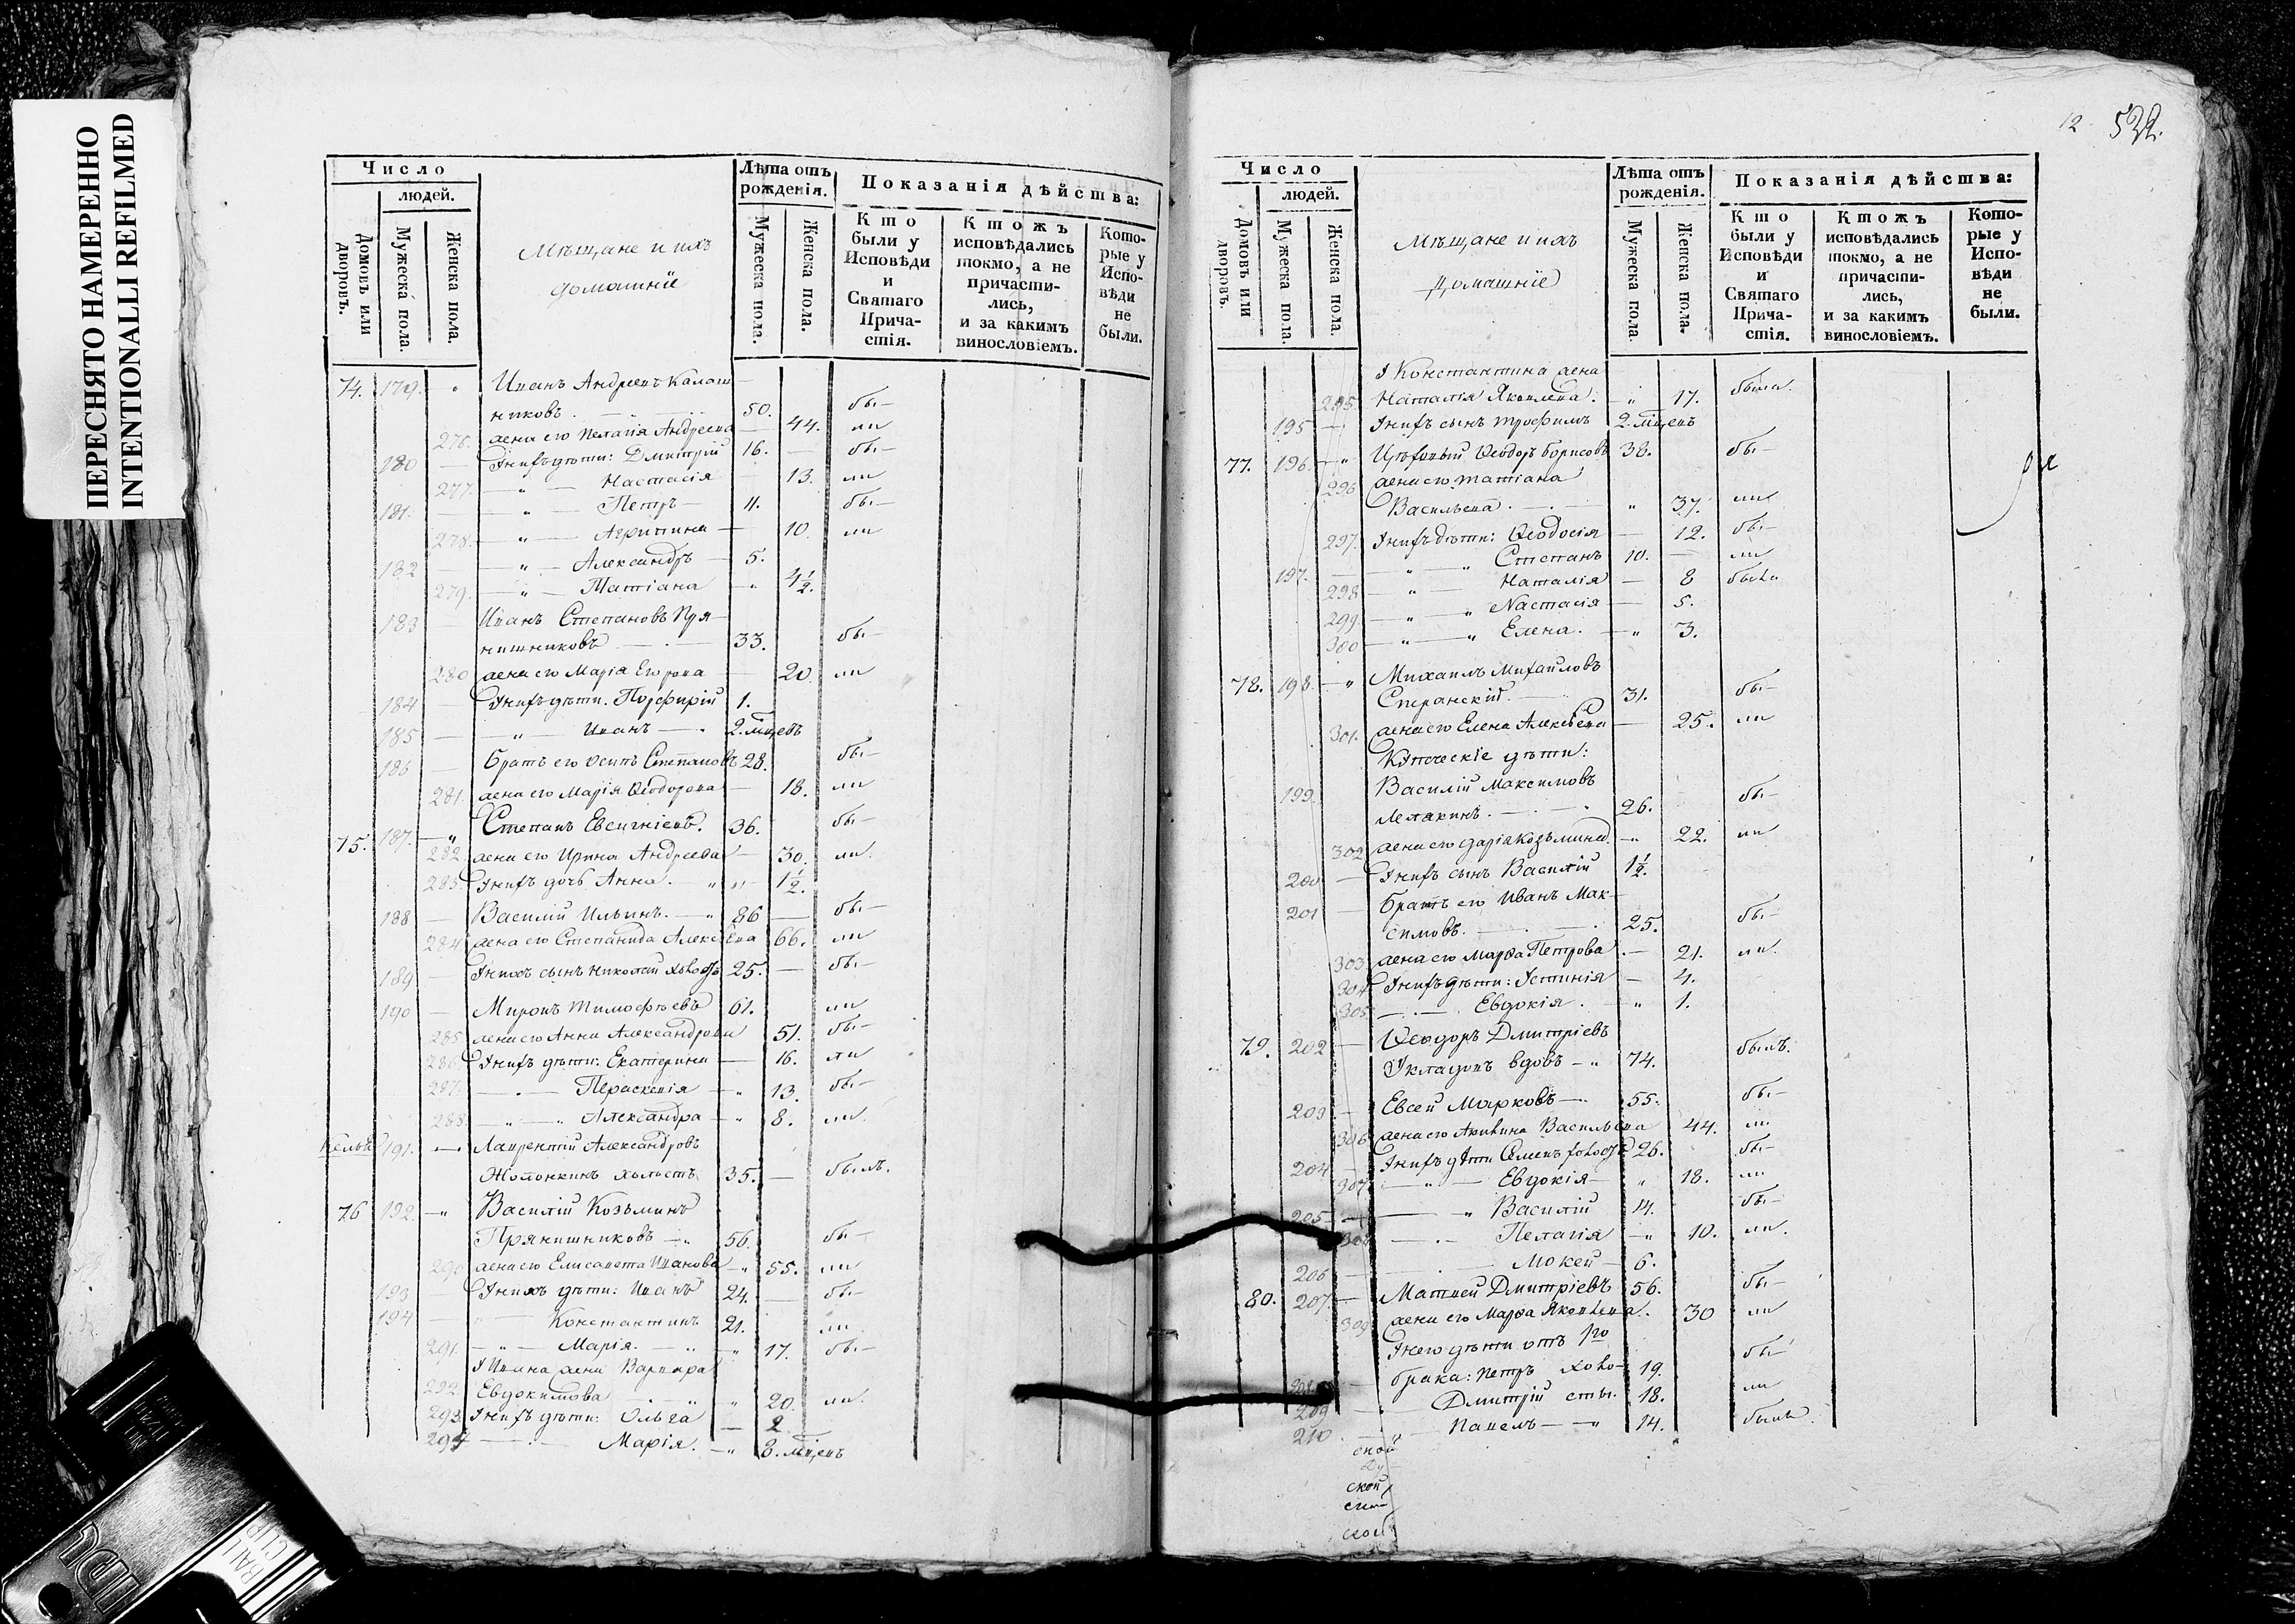 ПЕРЕСНЯТО НАМЕРЕННО
INTENTIONALLI REFILMED
Число
людей.
Домовъ или дворовъ.
Мужеска пола.
Женска пола.
Мѣщане и ихъ
домашніе
Лѣта отъ рожденія.
Мужеска пола.
Женска пола.
Показанія дѣйства:
Кто были у Исповѣди и Святаго Причастія.
Ктожъ исповѣдались токмо, а не причастились, и за какимъ винословіемъ.
Которые у Исповѣди не были.
74. 179. Иванъ Андреевъ Калаш
никовъ. 50. бы—
276. жена его Пелагія Андреева 44. ли
180 — У нихъ дѣти: Дмитрій 16. бы—
277. — „ — Настасія 13. ли
181. — „ — Петръ — 11. бы—
278. — „ — Агрипина — 10. ли
182 — „ — Александръ — 5.
279. — „ — Татіана — „ 4½.
183 — Иванъ Степановъ Пря
нишниковъ — 33. бы—
280 жена его Марія Егорова 20. ли
184 — У нихъ дѣти. Порфирій 1.
185 — „ — Иванъ — 2. мцевъ
186 — братъ его Осипъ Степановъ 28. бы—
281. жена его Марія Ѳеодорова — 18. ли
75. 187. — „ Степанъ Евсигніевъ. 36. бы—
282. жена его Ирина Андреева — 30. ли.
283. У нихъ дочь Анна. — „ 1½.
188 — Василій Ильинъ. — „ 86 — бы—
284 жена его Степанида Алексѣева 66. ли
189 — У нихъ сынъ Николай холостъ 25. — бы—
190 — Миронъ Тимофѣевъ 61. ли
285 жена его Анна Александрова 51. бы—
286. У нихъ дѣти: Екатерина — 16. ли
287. — Параскевія — „ 13. бы—
288 — „ — Александра — „ 8. ли.
191. — Лаврентій Александровъ
холостъ 35. — былъ.
76 192. — „ Василій Козьминъ
Прянишниковъ — „ 56. бы—
290 жена его Елисавета Иванова — „ 55. ли
193 — У нихъ дѣти: Иванъ 24. — бы—
194 — Константинъ 21. ли
291. — „ — Марія. — „ 17. бы—
У Ивана жена Варвара
292. Евдокимова „ 20. ли.
293. У нихъ дѣти: Ольга — 2
294 — Марія. — „ 8. мцевъ
12. 522.
Число
людей.
Домовъ или дворовъ.
Мужеска пола.
Женска пола.
Мѣщане и ихъ
домашніе
Лѣта отъ рожденія.
Мужеска пола
Женска пола.
Показанія дѣйства:
Кто были у Исповѣди и Святаго Причастія.
Ктожъ исповѣдались токмо, а не причастились, и за какимъ винословіемъ.
Которые у Исповѣди не были.
У Константина жена
295. Наталія Яковлева. — „ 17. была.
195 — У нихъ сынъ Трофимъ 2. мцевъ
77. 196. — „ Ѳеодоръ Борисовъ 38. бы—
296 жена его Татіана
Васильева. „ 37. ли
297. У нихъ дѣти: Ѳеодосія — 12. бы—
197. — „ — „ Степанъ 10. — ли
298 — „ — Наталія — 8 была
299 — „ — „ Настасія — 5.
300 — „ — „ Елена. — „ 3.
78. 198. — „ Михаилъ Михайловъ
Сперанскій. 31. бы—
301. жена его Елена Алексѣева — 25. ли
Купеческіе дѣти:
199. Василій Максимовъ
26. бы—
302 жена его Дарія Козьмина. — „ 22. ли
200 — У нихъ сынъ Василій 1½.
201 — братъ его Иванъ Мак-
симовъ. 25. бы—
303 жена его Марѳа Петрова. — 21. ли.
304 У нихъ дѣти: Устинія — 4.
305 — Евдокія. — „ 1.
79. 202 — Ѳеодоръ Дмитріевъ
вдовъ — „ 74. былъ.
203 — Евсей Марковъ — 55. бы—
306 жена его Акилина Васильева 44. ли
204 — У нихъ дѣти Семенъ холостъ 26. бы—
307. — „ — Евдокія — „ 18. ли
205 — „ Василій 14. бы—
308 — Пелагія — „ 10. ли.
206 — Мокей — 6.
80. 207. — Матвей Дмитріевъ 56. бы—
309 жена его Марѳа Яковлева. 30 ли
У него дѣти отъ 1го
208 — брака: Петръ холо- 19. бы—
209 — Дмитрій сты. 18. ли
210 — „ Павелъ — „ 14. былъ.